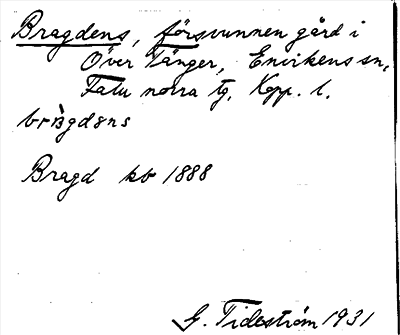 Bragdens, försvunnen gård i
Över Tänger, Envikens sn,
Falu norra tg. Kopp. l.
Bragd kb 1888
G. Tideström 1931